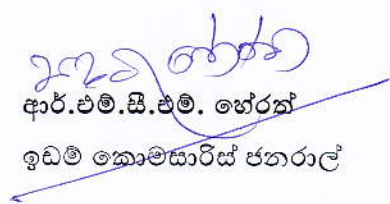 ආර්.එම්.සී.එම්. හේරත්
ඉඩම් කොමසාරිස් ජනරාල්